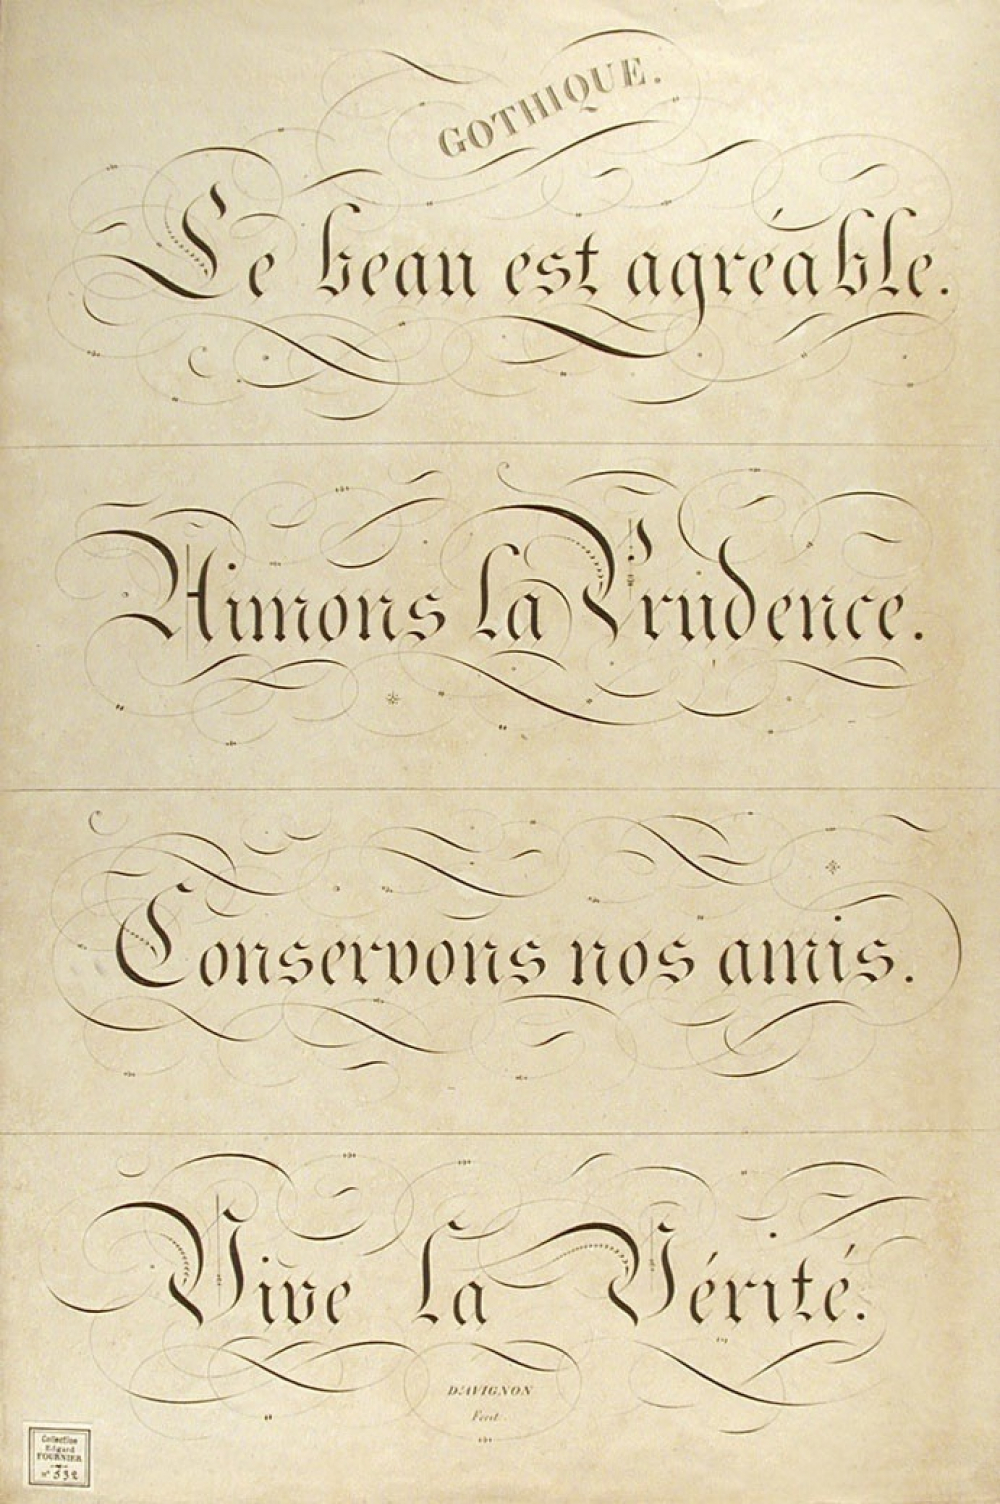 GOTHIQUE.
Le beau est agréable.
Aimons la Prudence.
Conservons nos amis.
Vive la Vérité.
D'AVIGNON
Fecit.
Collection
Edgard
FOURNIER
n° 532